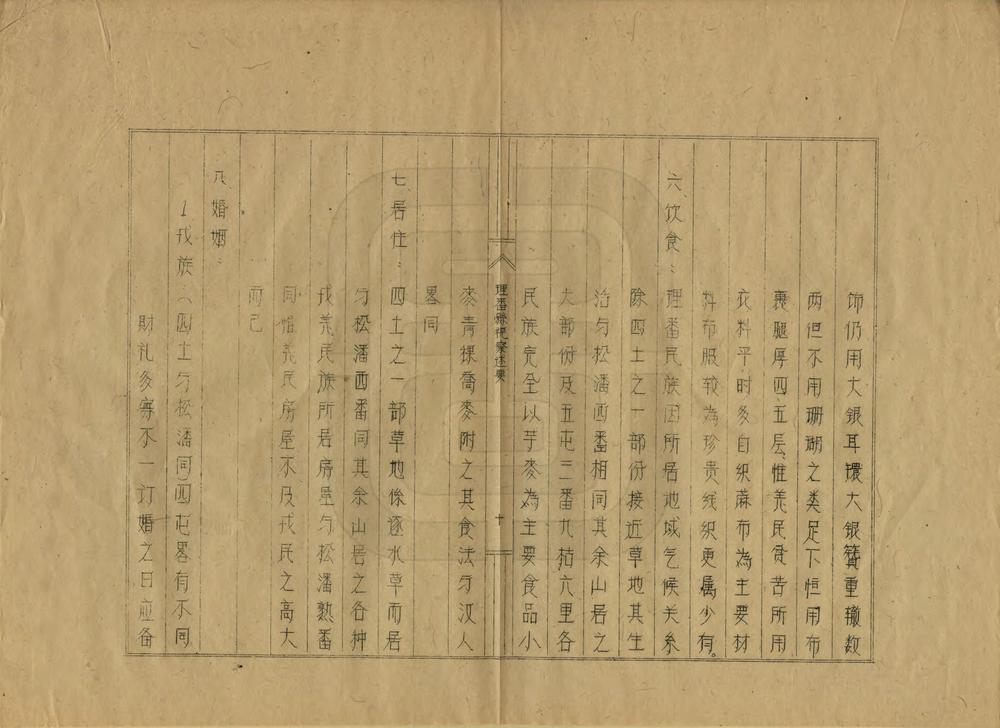 飾仍用大銀耳環大銀簪重辙数
两但不用珊瑚之类足下恒用布
裹腿厚四五层惟羌民貧苦所用
衣料平时多自织蔴布為主要材
料布服較為珍贵线织更属少有。
六、饮食：理番民族因所居地域气候关系
除四土之一部份接近草地其生
治与松潘西番相同其余山居之
大部份及五屯三番九枯六里各
民族完全以芋麥為主要食品小
理番縣視察述要
十
麥青稞喬麥附之其食法与汉人
畧同
七、居住：四土之一部草地係逐水草而居
与松潘西番同其余山居之各种
戎羌民族所居房屋与松潘熟番
同惟羌民房屋不及戎民之高大
而己
八、婚姻：
1戎族：(四土与松潘同)四屯畧有不同
財礼多寡不一订婚之日应备